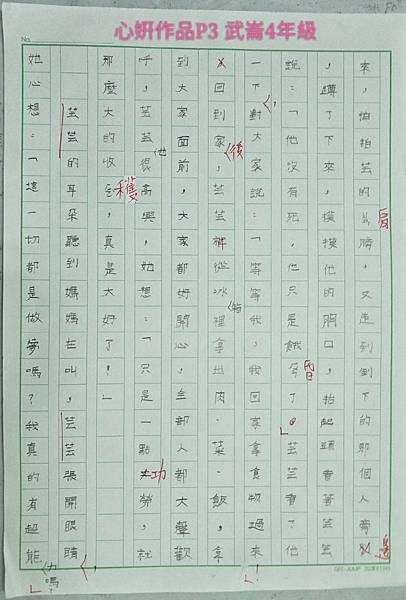 心妍作品P3 武崙4年級
No.
來，拍拍芸的肩膀，又走到倒下的那個人旁邊
，蹲了下來，摸摸他的胸口，抬起頭看著芸芸
說：「他沒有死，他只是餓昏了。」芸芸看了他
一下，對大家說：「等等我，我回家拿食物過來！」
回到家後，芸芸從冰箱裡拿出肉、菜、飯，拿
到大家面前，大家都好開心，全部人都大聲歡
呼，芸芸也很高興，她想：「只是一點功勞，就
那麼大的收穫，真是太好了！」
芸芸的耳朵聽到媽媽在叫，芸芸張開眼睛，
她心想：「這一切都是做夢嗎？我真的有超能力嗎？」